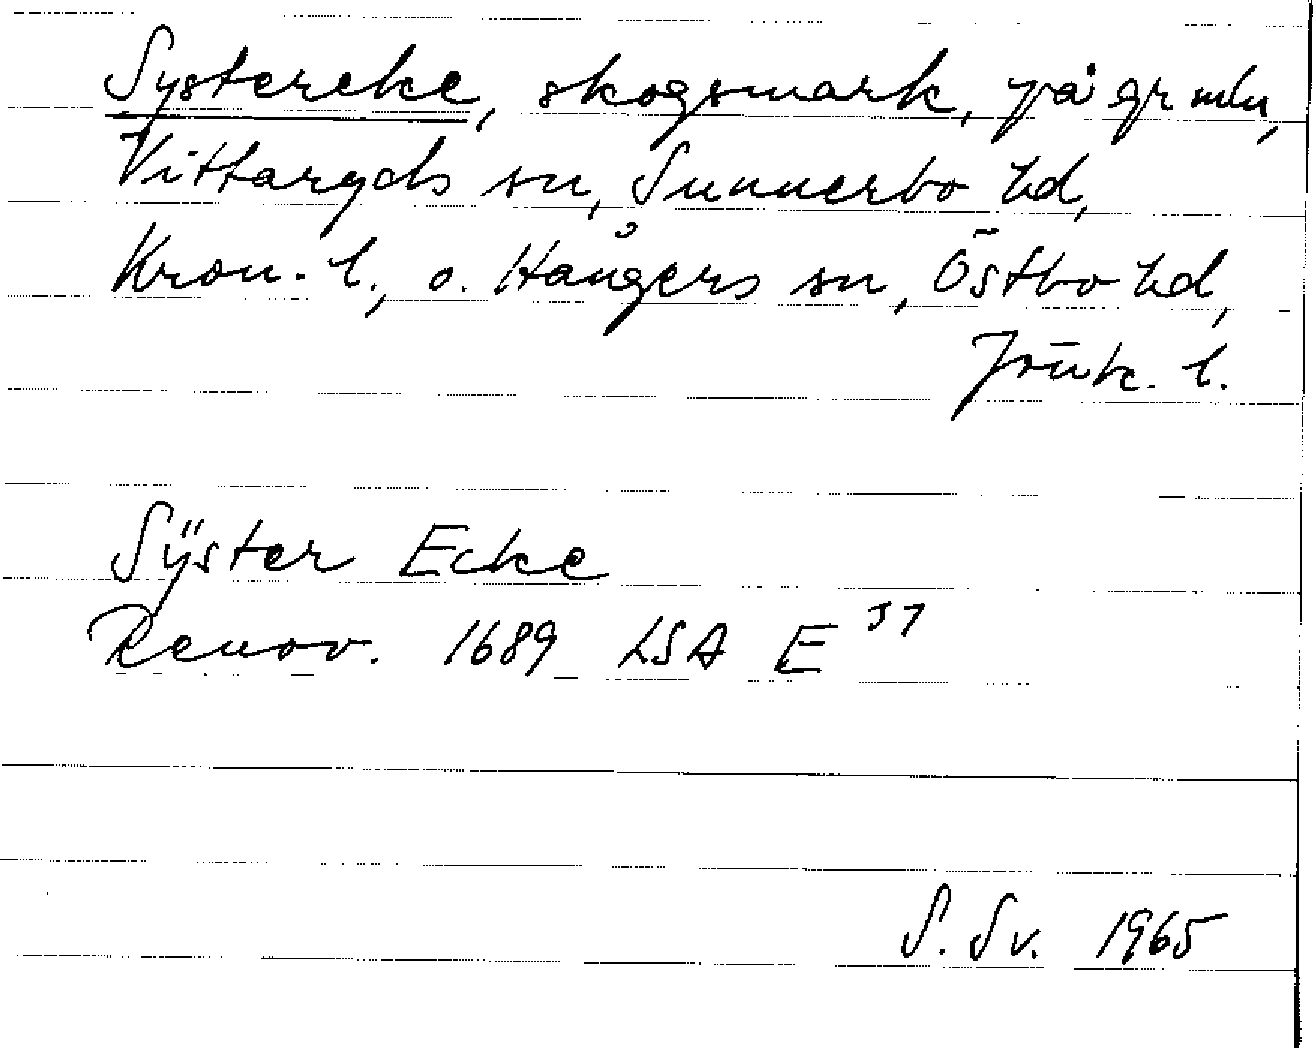 Systereke, skogsmark, på gr mln,
Vittaryds sn, Sunnerbo hd,
Kron. l., o. Hångers sn, Östbo hd,
Jönk. l.
Sÿster Ecke
Renov. 1689 LSA E 37
S. Sv. 1965